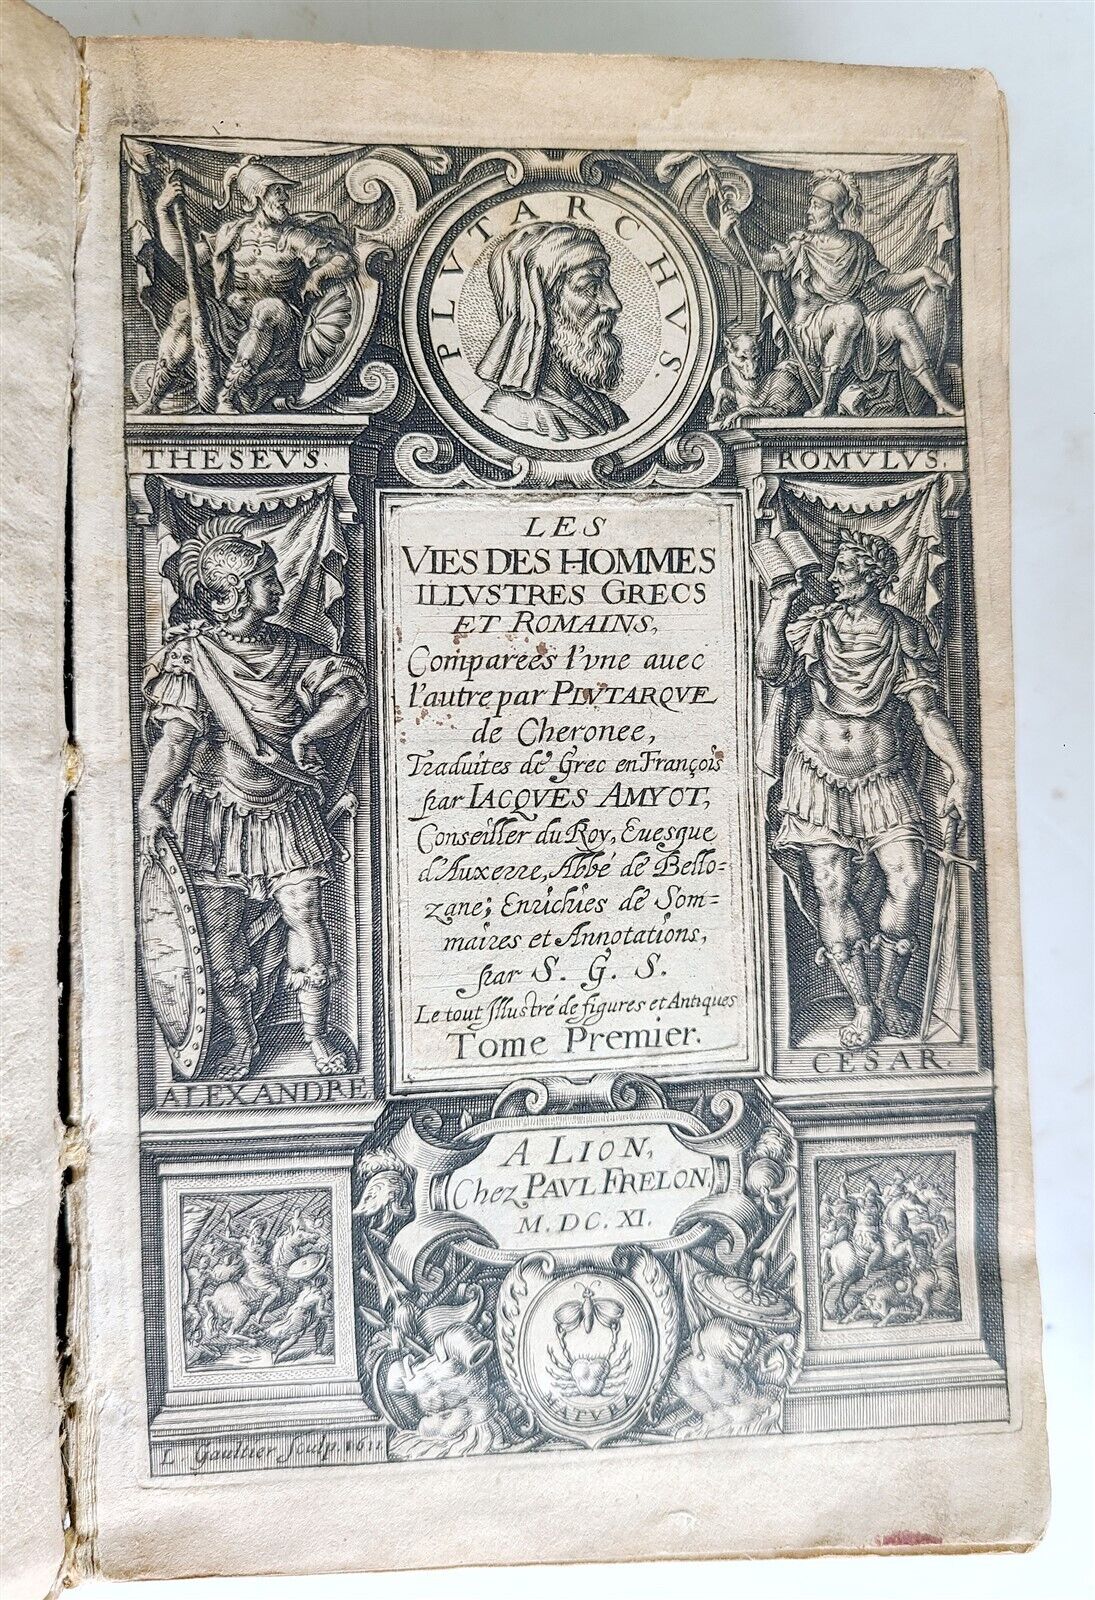 PLVTARCHVS.
THESEVS.
ROMVLVS.
LES
VIES DES HOMMES
ILLVSTRES GRECS
ET ROMAINS,
Comparees l'vne auec
l'autre par PLVTARQVE
de Cheronee,
Traduites de Grec en François
par IACQVES AMYOT,
Conseiller du Roy, Euesque
d'Auxerre, Abbé de Bello=
zane; Enrichies de Som=
maires et Annotations,
par S. G. S.
Le tout Illustré de figures et Antiques
Tome Premier.
ALEXANDRE
CESAR.
A LION,
Chez PAVL FRELON.
M. DC. XI.
MATVRA
L. Gaultier sculp. 1611